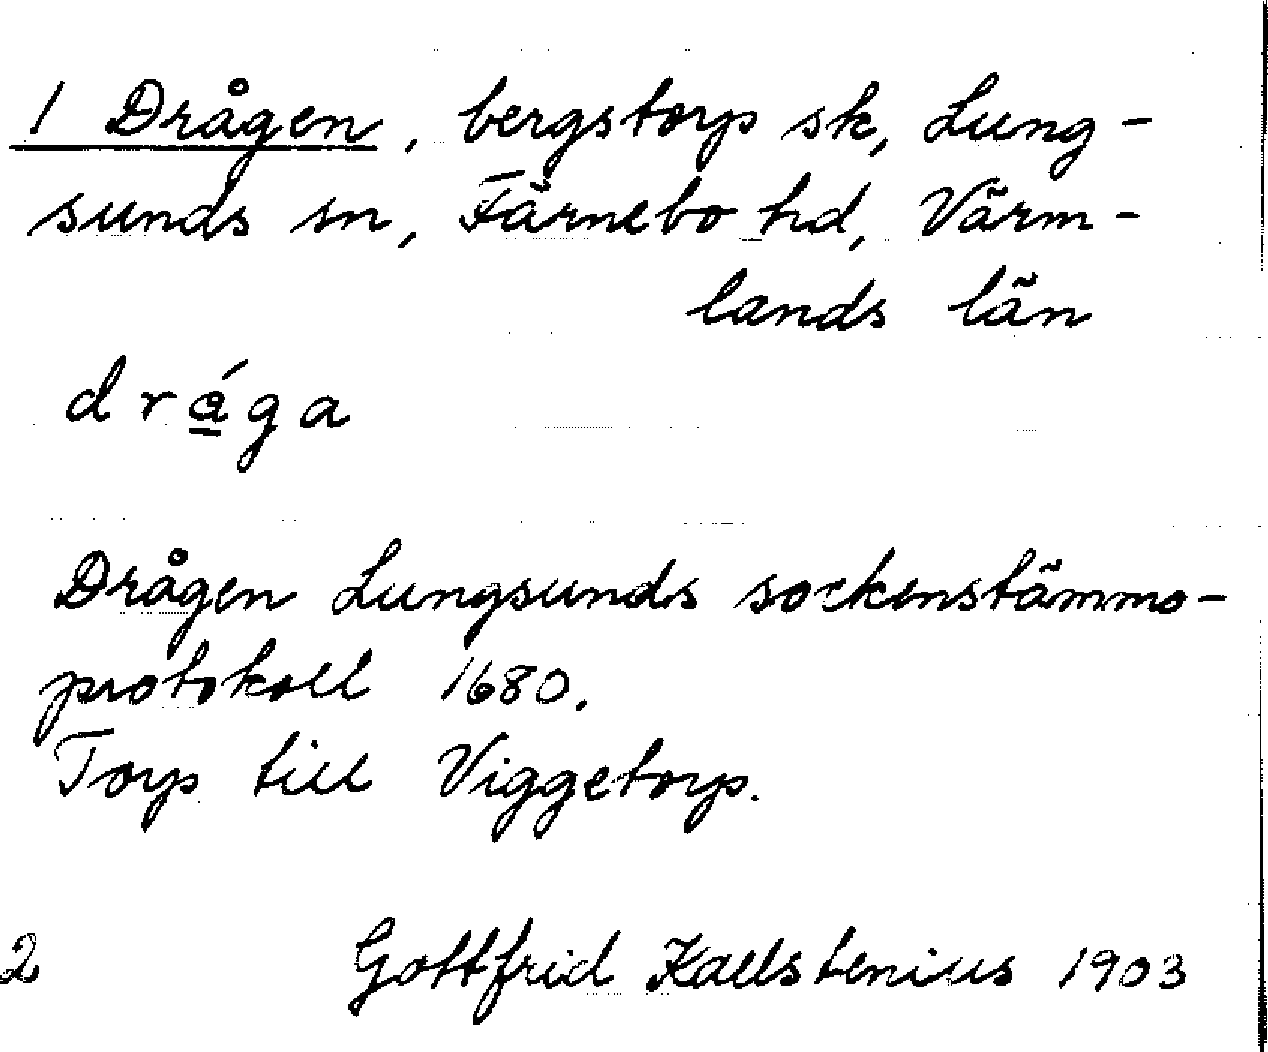 1 Drågen, bergstorp sk, Lung-
sunds sn, Färnebo hd, Värm-
lands län
drá̱ga
Drågen Lungsunds sockenstämmo-
protokoll 1680.
Torp till Viggetorp.
2 Gottfrid Kallstenius 1903